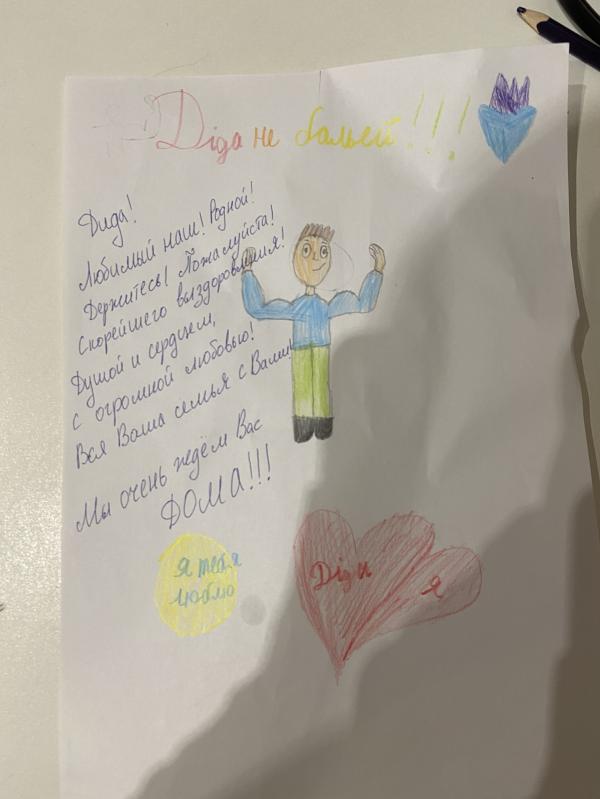 Діда не бальей!!!
Дида!
Любимый наш! Родной!
Держитесь! Пожалуйста!
Скорейшего выздоровления!
Душой и сердцем,
с огромной любовью!
Вся Ваша семья с Вами!
Мы очень ждём Вас
ДОМА!!!
я тебя
люблю
Діди
я